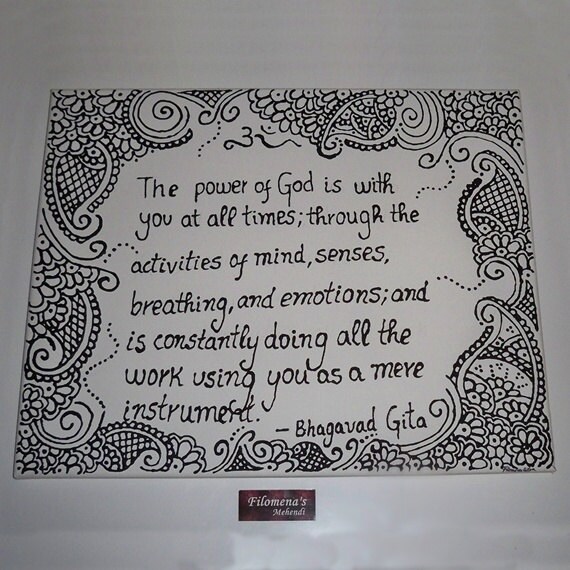 ॐ
The power of God is with
you at all times; through the
activities of mind, senses,
breathing, and emotions; and
is constantly doing all the
work using you as a mere
instrument.
- Bhagavad Gita
Filomena's
Mehendi